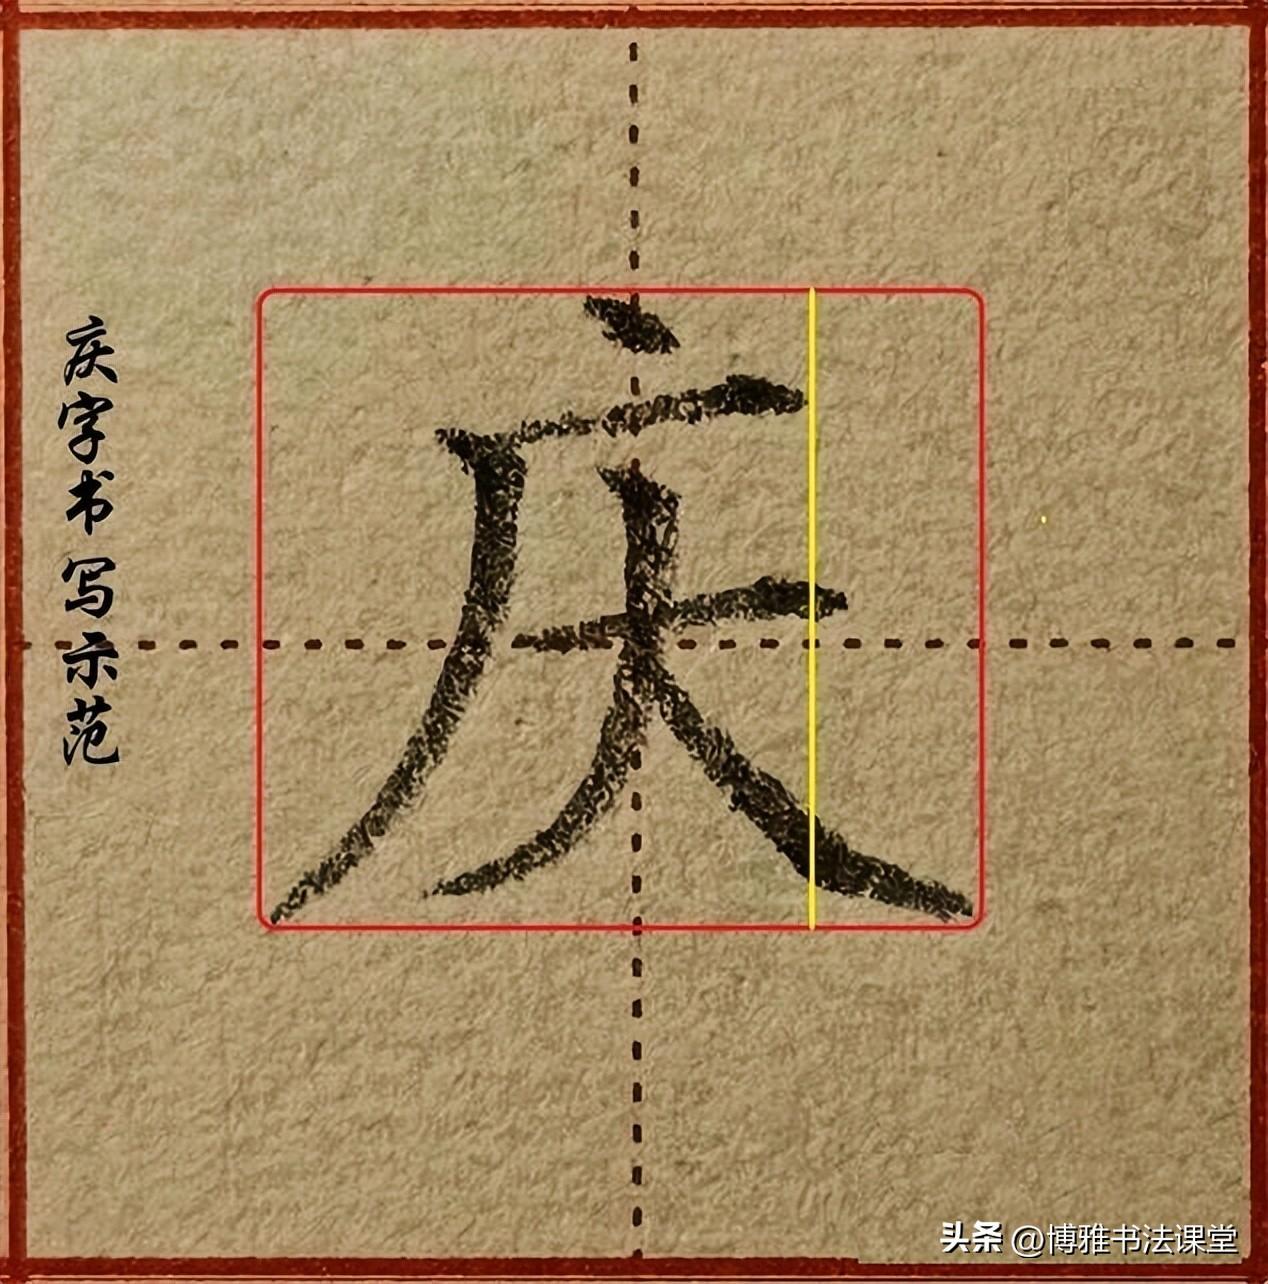 庆字书写示范
庆
头条 @博雅书法课堂